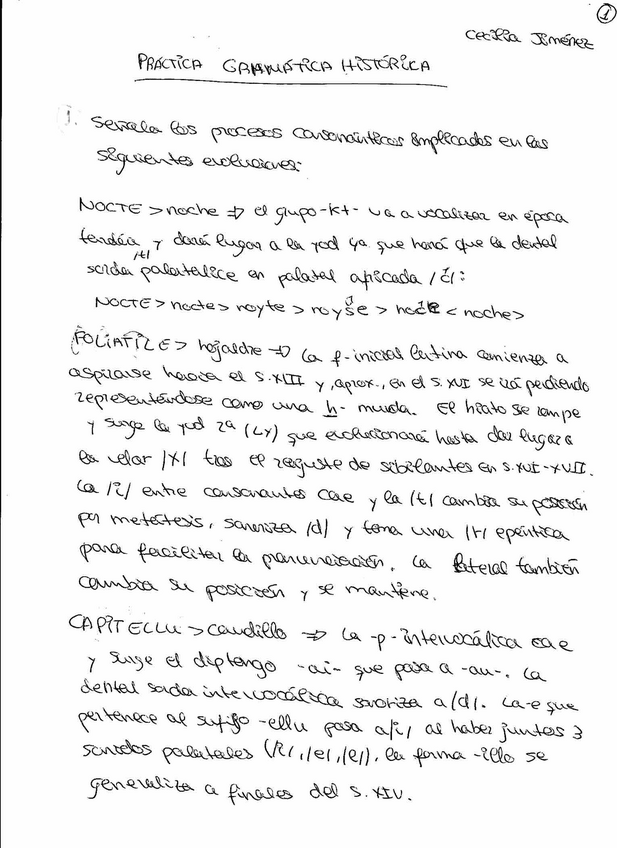 1
Cecilia Jiménez
PRÁCTICA GRAMÁTICA HISTÓRICA
1. Señala los procesos consonánticos implicados en las
siguientes evoluciones:
NOCTE > noche ⇒ el grupo -kt- va a vocalizar en época
tardía y dará lugar a la yod 4ª que hará que la dental
sorda /t/ palatalice en palatal africada /ĉ/:
NOCTE > nocte > noyte > noyŝe > noĉe < noche>
FOLIATILE > hojaldre ⇒ la f- inicial latina comienza a
aspirarse hacia el S. XIII y, aprox., en el S. XVI se irá perdiendo
representándose como una h- muda. El hiato se rompe
y surge la yod 2ª (Ly) que evolucionará hasta dar lugar a
la velar /X/ tras el reajuste de sibilantes en S. XVI-XVII.
La /i/ entre consonantes cae y la /t/ cambia su posición
por metátesis, sonoriza /d/ y toma una /r/ epéntica
para facilitar la pronunciación. La lateral también
cambia su posición y se mantiene.
CAPITELLU > caudillo ⇒ la -p- intervocálica cae
y surge el diptongo -ai- que pasa a -au-. La
dental sorda intervocálica sonoriza a /d/. La -e que
pertenece al sufijo -ellu pasa a /i/ al haber juntos 3
sonidos palatales, la forma -illo se
generaliza a finales del S. XIV.